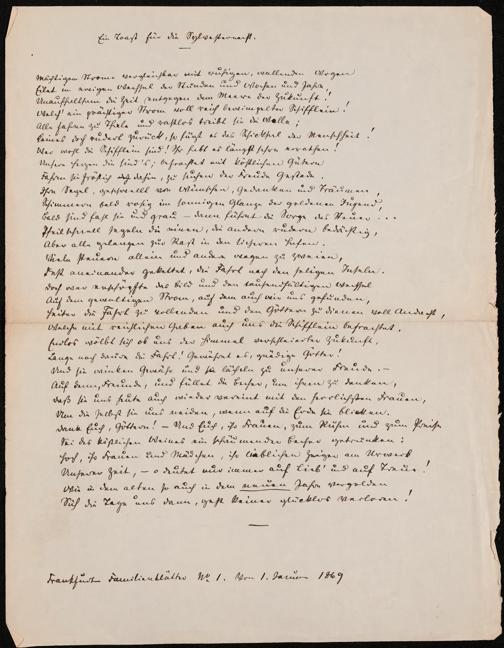 Ein Toast für die Sylvesternacht.
Mächtigem Strome vergleichbar mit ruhigen, wallenden Wogen
Eilet im ewigen Wechsel der Stunden und Wochen und Jahre
Unaufhaltsam die Zeit entgegen dem Meere der Zukunft!
Welch' ein prächtiger Strom voll reich bewimpelter Schifflein!
Alle fahren zu Thale und rastlos treibt sie die Welle;
Keines doch rudert zurück, so fügt es das Schicksal der Menschheit!
Wer wohl die Schifflein sind? Ihr habt es längst schon errathen!
Unsere Herzen die sind's; befrachtet mit köstlichen Gütern
Fahren sie fröhlich dahin, zu suchen der Freude Gestade.
Ihre Segel, geschwellt von Wünschen, Gedanken und Träumen,
Schimmern bald rosig im sonnigen Glanze der goldenen Jugend,
Bald sind fahl sie und grau – dann führet die Sorge das Steuer...
Pfeilschnell segeln die einen, die andern rudern bedächtig,
Aber alle gelangen zur Rast in den sicheren Hafen.
Viele steuern allein und andre wagen zu zweien,
Fest aneinander gekettet, die Fahrt nach den seligen Inseln.
Doch wer erschöpfte das Bild und den tausendfältigen Wechsel
Auf dem gewaltigen Strom, auf dem auch wir uns gefunden,
Heiter die Fahrt zu vollenden und den Göttern zu dienen voll Andacht,
Welche mit reichlichen Gaben auch uns die Schifflein befrachtet.
Endlos wölbt sich ob uns der Himmel verschleierter Zukunft.
Lange noch daure die Fahrt! Gewähret es, gnädige Götter!
Und sie winken Gewähr und sie lächeln zu unserer Freude. –
Auf denn, Freunde, und füllet die Becher, um ihnen zu danken,
Daß sie uns heute auch wieder vereint mit den herrlichsten Frauen,
Um die selbst sie uns neiden, wenn auf die Erde sie blicken.
Dank Euch, Göttern! – Und Euch, ihr Frauen, zum Ruhm und zum Preise
Sei des köstlichen Weines ein schäumender Becher getrunken:
Hoch, ihr Frauen und Mädchen, ihr lieblichen Zeiger am Uhrwerk
Unserer Zeit, – o deutet nur immer auf Lieb' und auf Treue!
Wie in dem alten so auch in dem neuen Jahr vergolden
Sich die Tage uns dann, geht keiner glücklos verloren!
Frankfurter Familienblätter No 1. Vom 1. Januar 1869